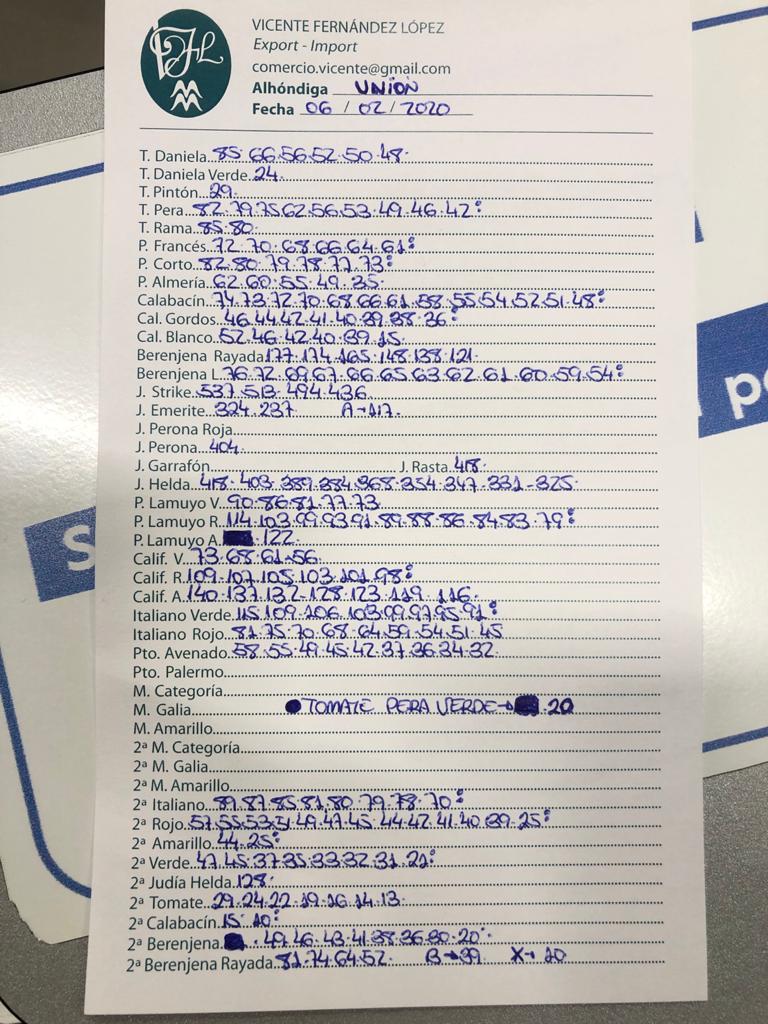 VICENTE FERNÁNDEZ LÓPEZ
Export - Import
comercio.vicente@gmail.com
Alhóndiga UNION
Fecha 06 / 02 / 2020
T. Daniela 85. 66.56.52.50.48.
T. Daniela Verde 24.
T. Pintón 29.
T. Pera 82.79.75.62.56.53.49.46.42:
T. Rama 85.80.
P. Francés 72.70.68.66.64.61:
P. Corto 82.80.79.78.77.73:
P. Almería 62.60.55.49.35.
Calabacín 74.73.72.70.68.66.61.58.55.54.52.51.48:
Cal. Gordos 46.44.42.41.40.39.38.36:
Cal. Blanco 52.46.42.40.39.15.
Berenjena Rayada 177.174.165.148.138.121.
Berenjena L. 76.72.69.67.66.65.63.62.61.60.59.54:
J. Strike 537.513.494.436.
J. Emerite 324.237. A→117.
J. Perona Roja
J. Perona 404.
J. Garrafón J. Rasta 418.
J. Helda 418.403.389.384.368.354.347.331-325.
P. Lamuyo V. 90.86.81.77.73.
P. Lamuyo R. 114.103.99.93.91.89.88.86.84.83.79:
P. Lamuyo A. 122.
Calif. V. 73.68.61.56.
Calif. R. 109.107.105.103.101.98:
Calif. A. 140.137.132-128.123.119.116.
Italiano Verde 115.109.106.103.99.97.95.91:
Italiano Rojo 81.75.70.68.64.59.54.51.45
Pto. Avenado 58.55.49.45.42.37.36.34.32.
Pto. Palermo
M. Categoría
M. Galia TOMATE PERA VERDE→ .20
M. Amarillo
2ª M. Categoría
2ª M. Galia
2ª M. Amarillo
2ª Italiano 89.87.85.81.80.79.78.70:
2ª Rojo 57.55.53.51.49.47.45.44.42.41.40.39.25:
2ª Amarillo 44.25:
2ª Verde 47.45.37.35.33.32.31.21:
2ª Judía Helda 128.
2ª Tomate 29.24.22.19.16.14.13.
2ª Calabacín 15.10:
2ª Berenjena .49.46.43.41.38.36.30.20:
2ª Berenjena Rayada 81.74.64.52. B→39 X→10